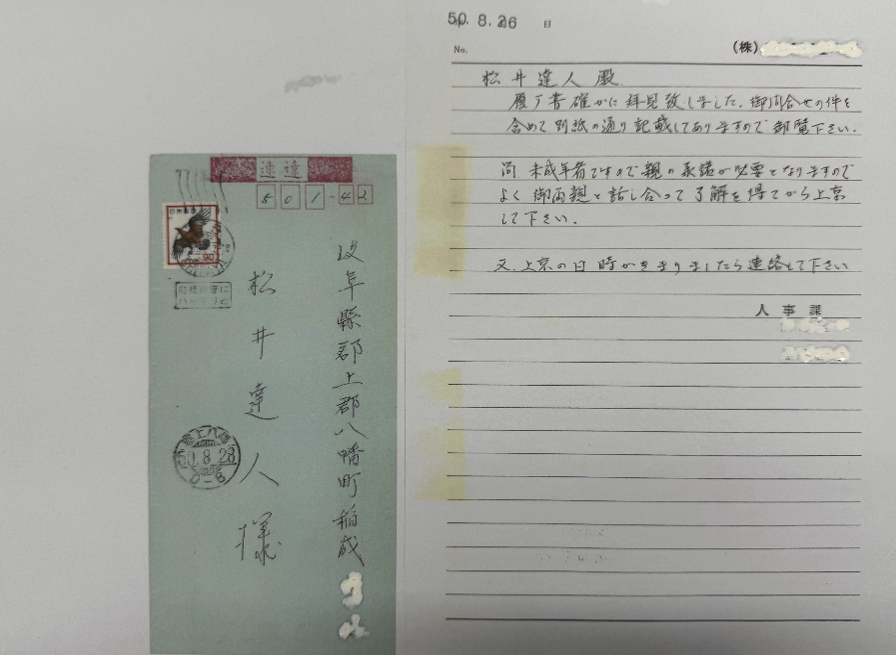 速達
501-42
岐阜縣郡上郡八幡町稲成
松井達人様
90
郡上八幡
50.8.28
0-8
50.8.26
日
No.
(株)
松井達人殿
履丁書確かに拝見致しました。御問合せの件を
含めて別紙の通り記載してありますので御覧下さい。
尚未成年者ですので親の承諾が必要となりますので
よく御両親と話し合って了解を得てから上京
して下さい。
又、上京の日時がきまりましたら連絡して下さい
人事課